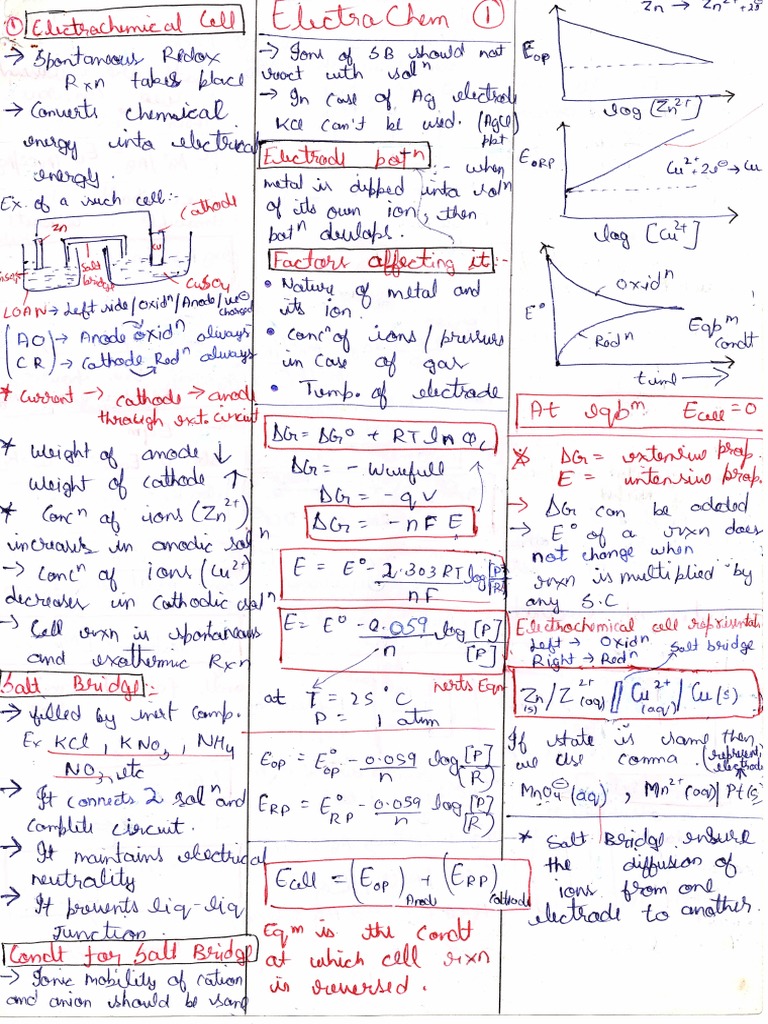 ① Electrochemical Cell
→ Spontaneous Redox
Rxn takes place
→ Converts chemical
energy into electrical
energy.
Ex. of a such cell:-
Zn
Cathode
Salt
bridge
Cu
CuSO4
LOAN → Left side/Oxidⁿ/Anode/-ve ⊖
charged
(AO) → Anode Oxidⁿ always
(CR) → Cathode Redⁿ always
* Current → cathode → anode
through ext. circuit
* Weight of anode ↓
Weight of cathode ↑
* Concⁿ of ions (Zn²⁺)
increases in anodic solⁿ
→ Concⁿ of ions (Cu²⁺)
decreases in Cathodic solⁿ
→ Cell rxn is spontaneous
and exothermic Rxn
Salt Bridge:-
→ filled by inert comp.
Ex KCl, KNO3, NH4
NO3 etc
→ It connects 2 solⁿ and
complete circuit.
→ It maintains electrical
neutrality
→ It prevents liq-liq
Junction.
Condt for Salt Bridge
→ Ionic mobility of cation
and anion should be same
ElectraChem ①
→ Ions of SB should not
react with solⁿ
→ In case of Ag electrode
KCl can't be used. (AgCl)
ppt
Electrode potⁿ :- when
metal is dipped into solⁿ
of its own ion, then
potⁿ develops.
Factors affecting it:-
• Nature of metal and
its ion.
• Concⁿ of ions / pressure
in case of gas
• Temp. of electrode
ΔG = ΔG° + RT ln Qc
ΔG = - Wusefull
ΔG = - qV
ΔG = - nF E
E = E° - 2.303RT/nF log [P]/[R]
E = E° - 0.059/n log [P]/[P]
nerts Eqn
at T = 25°C
P = 1 atm
EOP = E°OP - 0.059/n log [P]/[R)
ERP = E°RP - 0.059/n log [P]/[R)
Ecell = (EOP)Anode + (ERP)cathode
Eqm is the condt
at which cell rxn
is reversed.
Zn → Zn²⁺ + 2e⊖
EOP
log [Zn²⁺]
EORP
Cu²⁺+2e⊖ → Cu
log [Cu²⁺]
E°
Oxidⁿ
Redⁿ
Eqbᵐ
condt
time →
At eqbᵐ Ecell = 0
* ΔG = extensive prop.
E = intensive prop.
→ ΔG can be added
→ E° of a rxn does
not change when
rxn is multiplied by
any S.C
Electrochemical cell representatⁿ
Left → Oxidⁿ
Right → Redⁿ
Salt bridge
Zn(s) / Z²⁺(aq) || Cu²⁺(aq) | Cu(s)
If state is same then
we use comma. (represent
electrode
MnO4⊖(aq), Mn²⁺(aq) | Pt(s)
* Salt Bridge ensure
the diffusion of
ions from one
electrode to another.